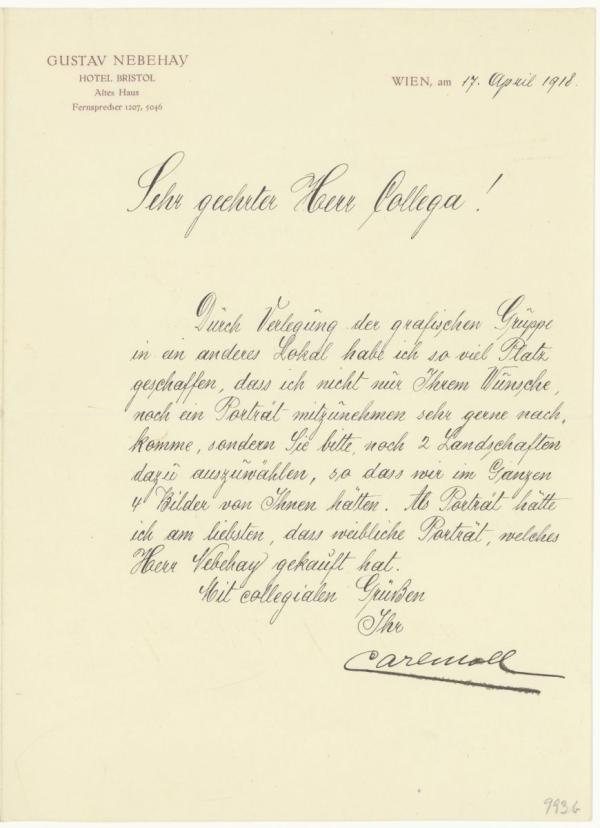 GUSTAV NEBEHAY
HOTEL BRISTOL
Altes Haus
Fernsprecher 1207, 5046
WIEN, am 17. April 1918.
Sehr geehrter Herr Collega!
Dürch Verlegüng der grafischen Grüppe
in ein anderes Lokal habe ich so viel Platz
geschaffen, dass ich nicht nür Ihrem Wünsche,
noch ein Porträt mitzünehmen sehr gerne nach,
komme, sondern Sie bitte, noch 2 Landschaften
dazü auszüwählen, so dass wir im Ganzen
4 Bilder von Ihnen hätten. Als Porträt hätte
ich am liebsten, dass weibliche Porträt, welches
Herr Nebehay gekaüft hat.
Mit collegialen Grüßen
Ihr
Carl Moll
993.6